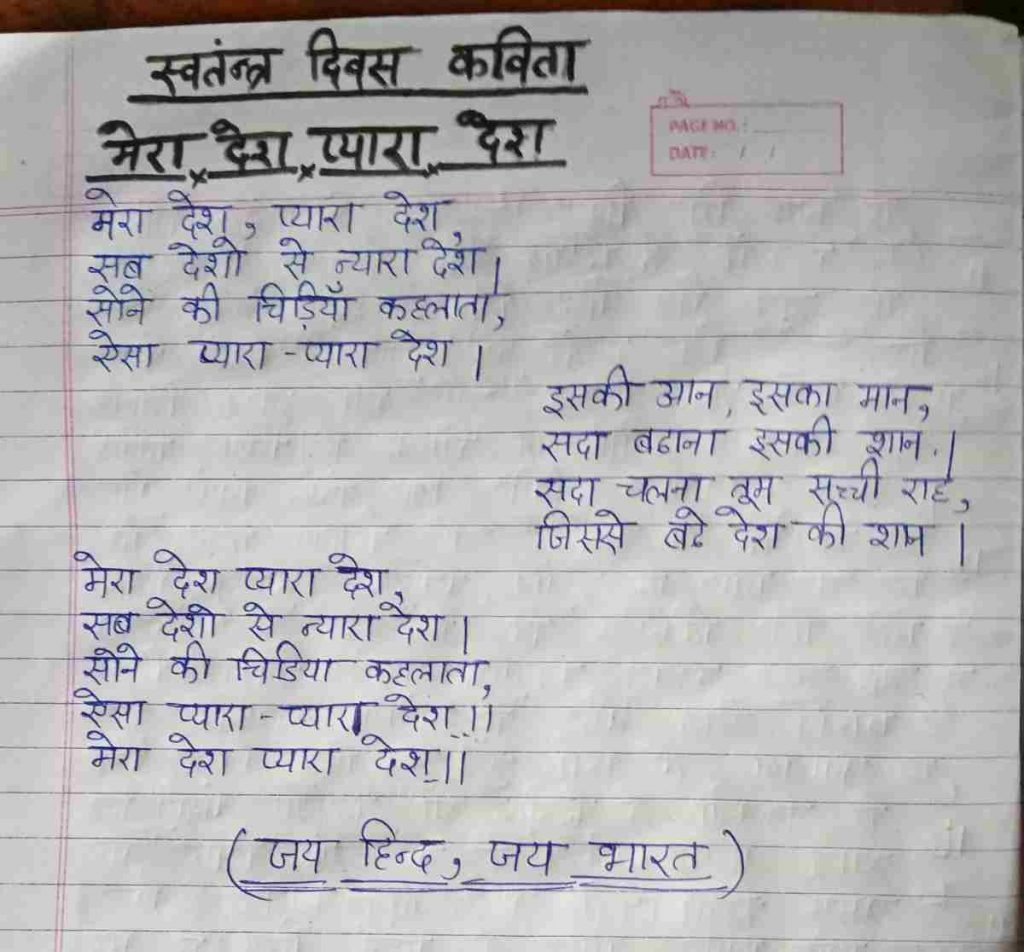 स्वतंन्त्र दिवस कविता
मेरा देश प्यारा देश
PAGE NO.:
DATE: / /
मेरा देश, प्यारा देश,
सब देशो से न्यारा देश।
सोने की चिड़ियाँ कहलाता,
ऐसा प्यारा-प्यारा देश।
इसकी आन, इसका मान,
सदा बढाना इसकी शान।
सदा चलना तूम सच्ची राह,
जिससे बढे देश की शान।
मेरा देश प्यारा देश,
सब देशो से न्यारा देश।
सोने की चिडिया कहलाता,
ऐसा प्यारा-प्यारा देश..!!
मेरा देश प्यारा देश..।।
(जय हिन्द, जय भारत)